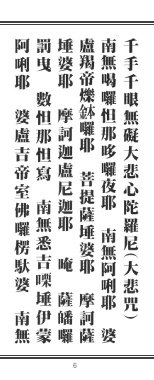 千手千眼無礙大悲心陀羅尼(大悲咒)
南無喝囉怛那哆囉夜耶　南無阿唎耶　婆
盧羯帝爍鉢囉耶　菩提薩埵婆耶　摩訶薩
埵婆耶　摩訶迦盧尼迦耶　唵　薩皤囉
罰曳　數怛那怛寫　南無悉吉嘌埵伊蒙
阿唎耶　婆盧吉帝室佛囉楞馱婆　南無
6